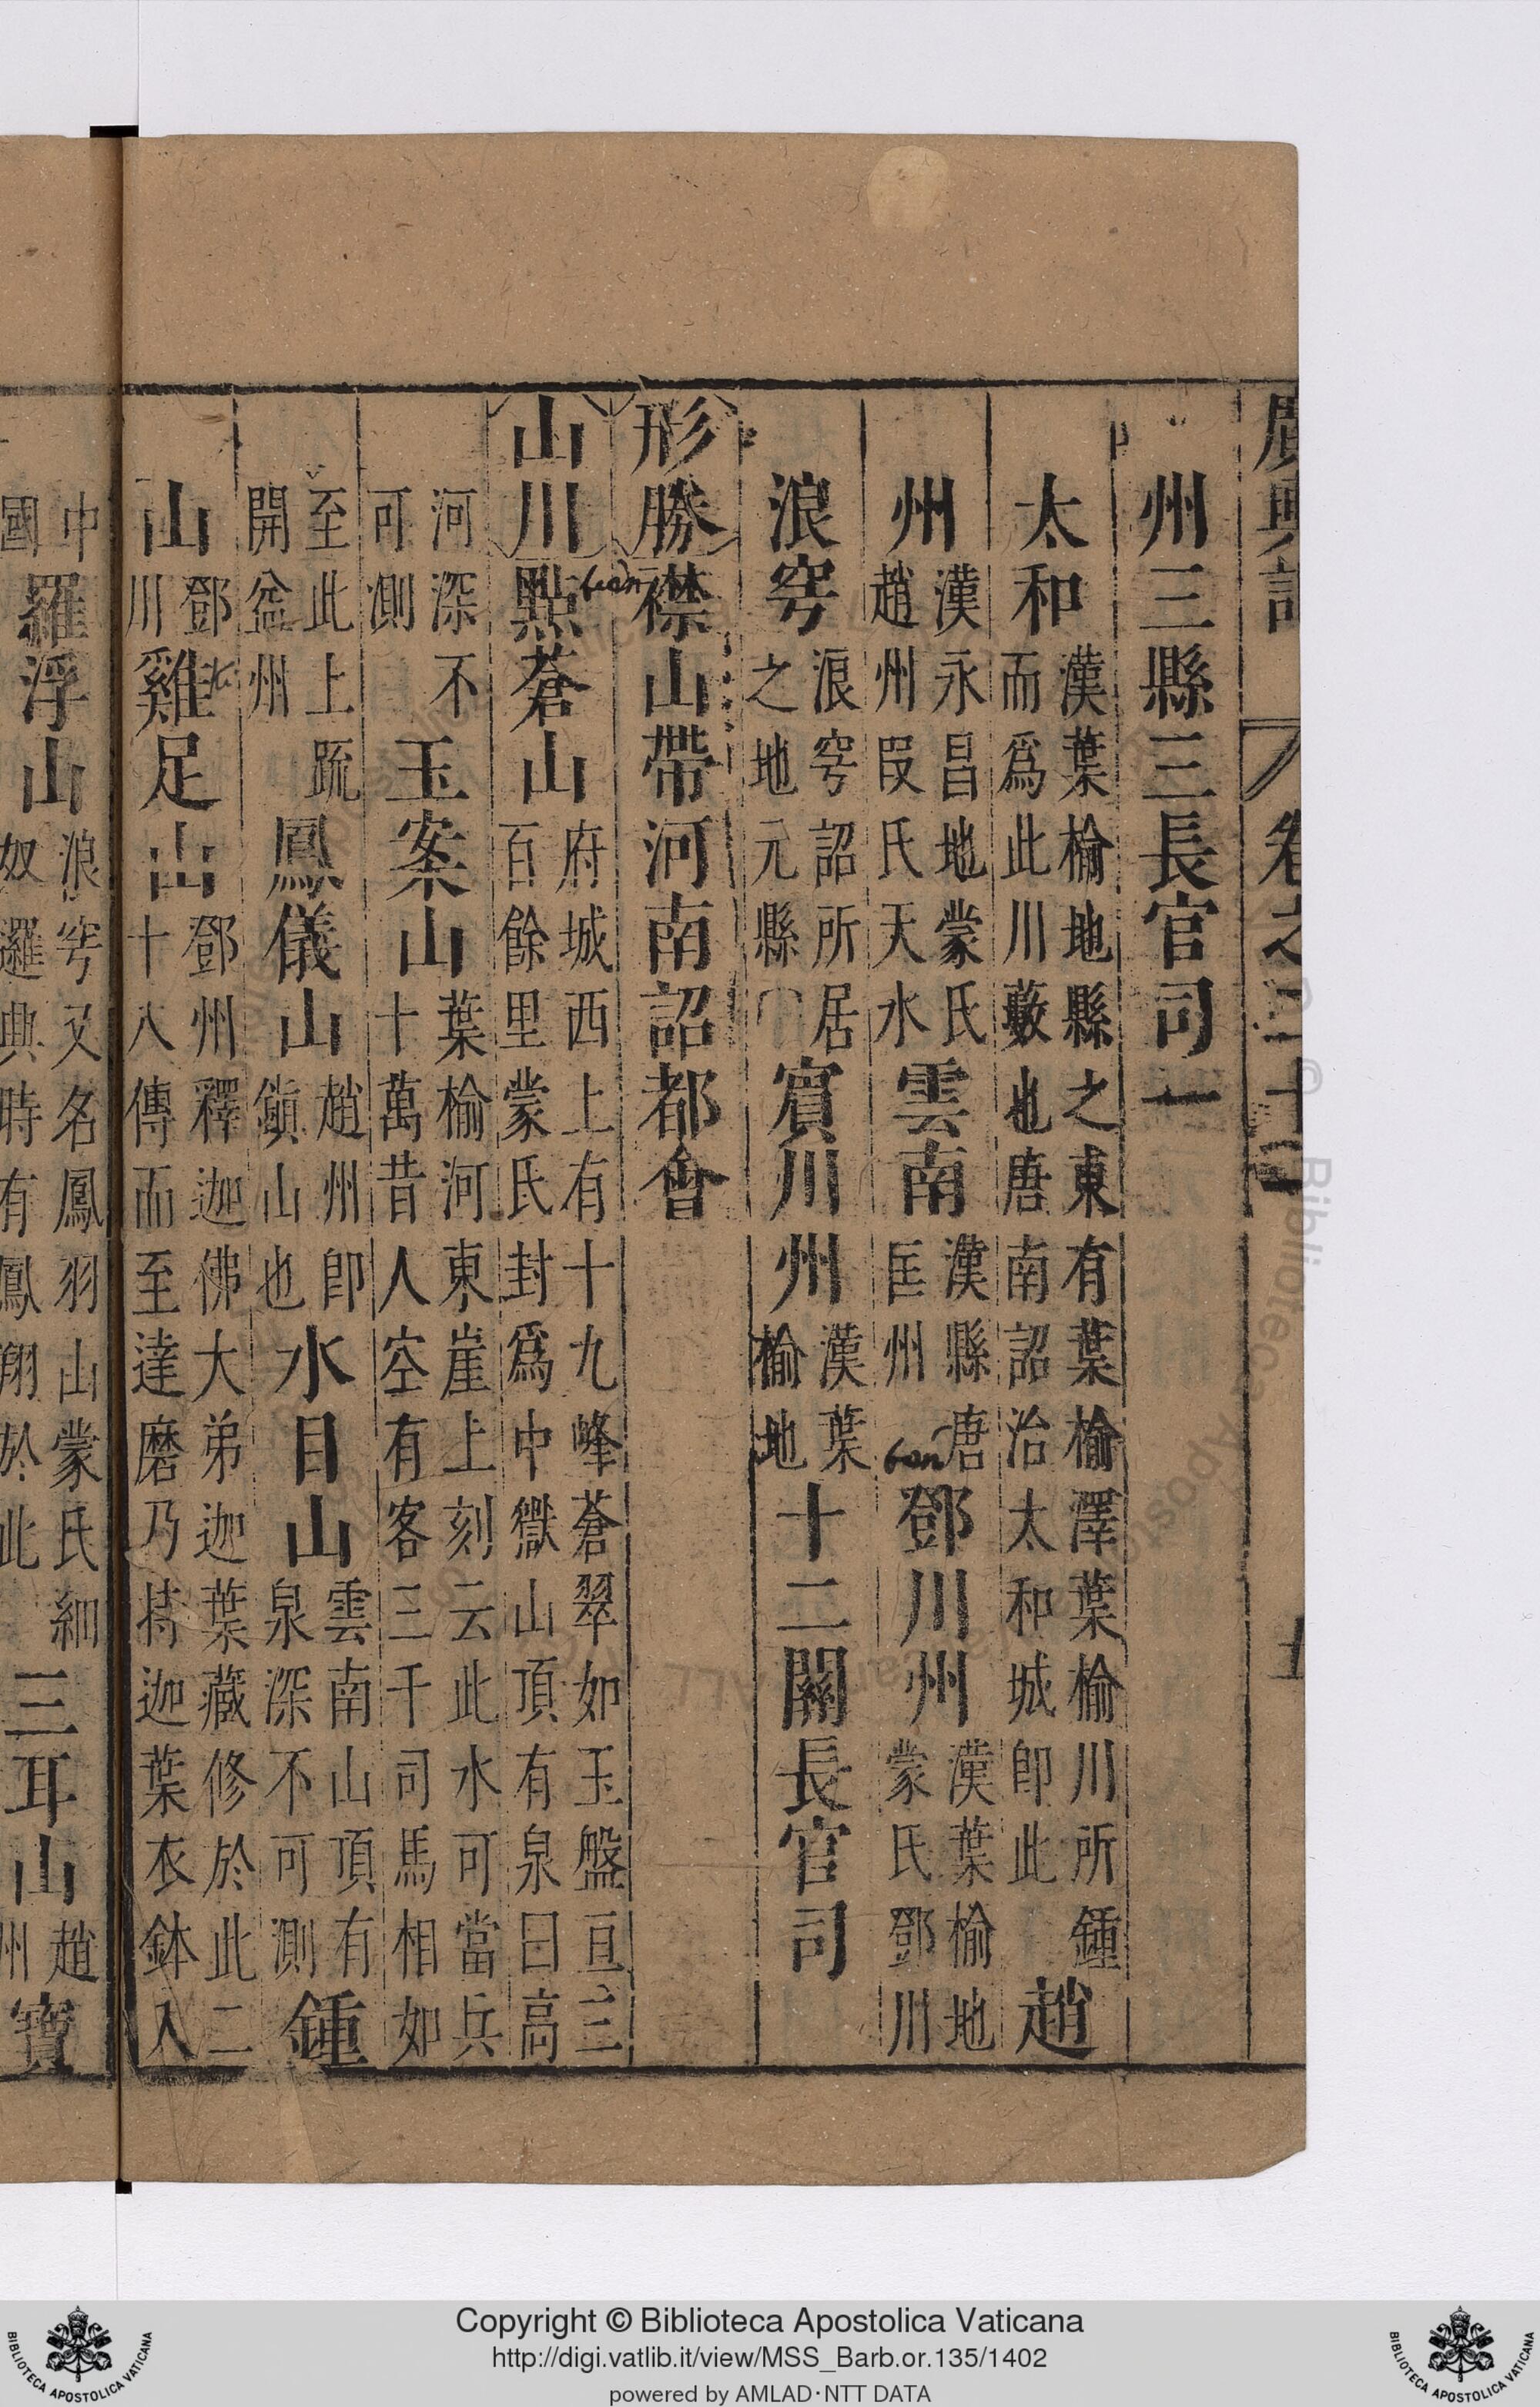 廣輿記 卷之二十一
州三縣三長官司一
太和漢葉榆地縣之東有葉榆澤葉榆川所鍾而爲此川藪也唐南詔治太和城即此趙
州漢永昌地蒙氏趙州叚氏天水雲南漢縣唐匡州鄧川州漢葉榆地蒙氏鄧川
浪穹浪穹詔所居之地元縣賓川州漢葉榆地十二關長官司
形勝襟山帶河南詔都會
山川點蒼山府城西上有十九峰蒼翠如玉盤亘三百餘里蒙氏封爲中嶽山頂有泉曰高
河深不可測玉案山葉榆河東崖上刻云此水可當兵十萬昔人空有客三千司馬相如
至此上䟽開益州鳳儀山趙州即鎮山也水目山雲南山頂有泉深不可測鍾
山鄧川雞足山鄧州釋迦佛大弟迦葉藏修於此二十八傳而至達磨乃持迦葉衣鉢入
中國羅浮山浪穹又名鳳羽山蒙氏細奴邏興時有鳳翔於此三耳山趙州寶
Copyright © Biblioteca Apostolica Vaticana
http://digi.vatlib.it/view/MSS_Barb.or.135/1402
powered by AMLAD·NTT DATA
BIBLIOTECA APOSTOLICA VATICANA
BIBLIOTECA APOSTOLICA VATICANA